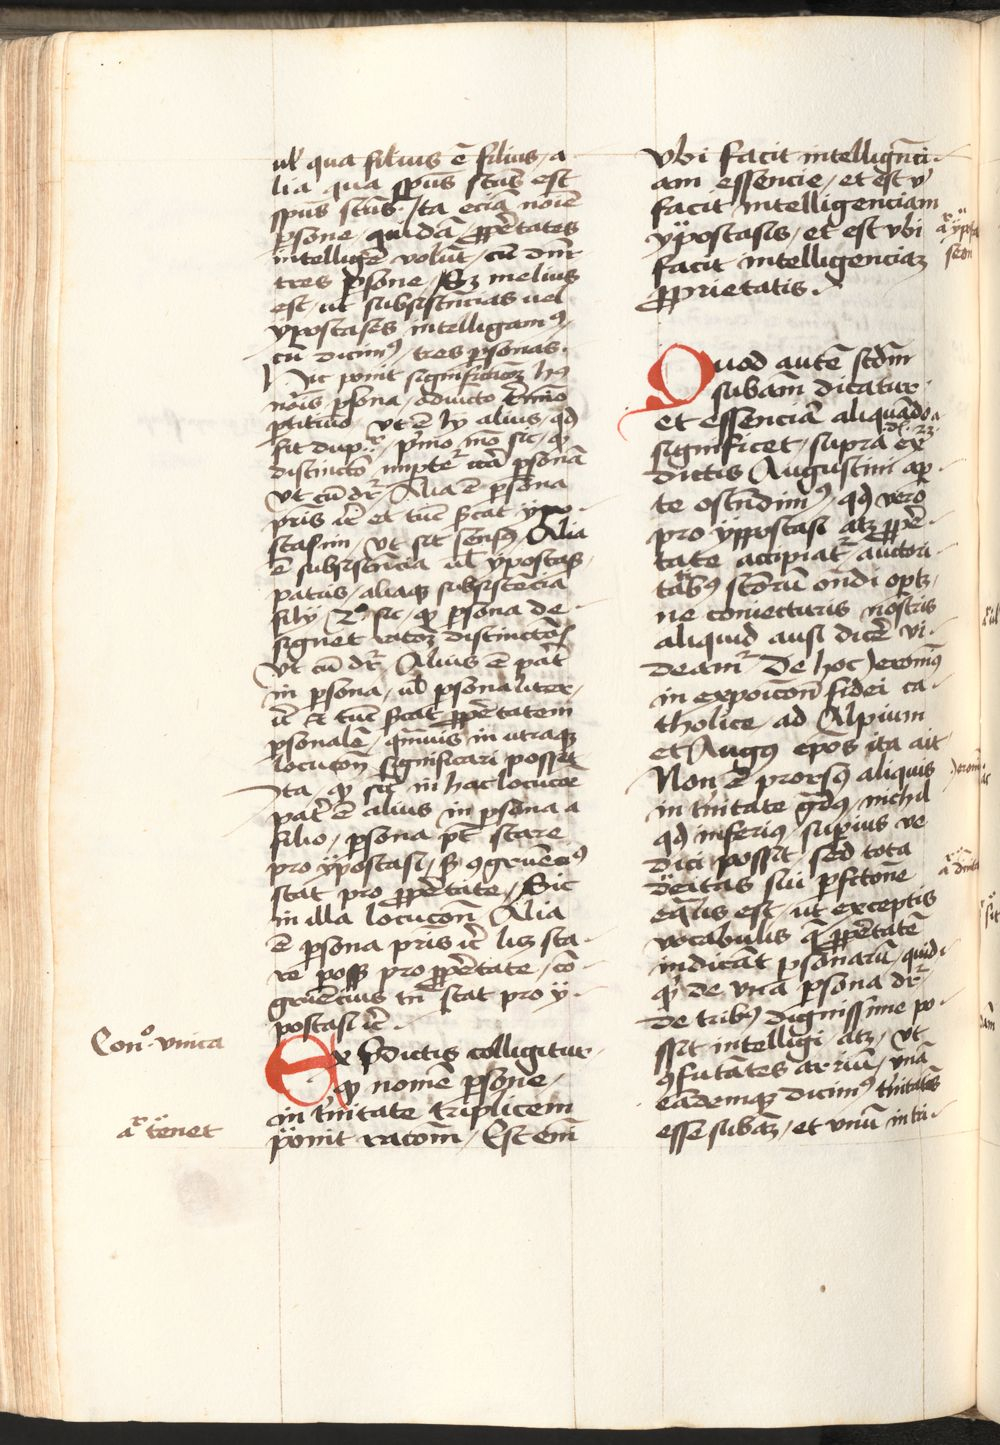 ul̕ qua filius ē filius / a
lia qua spūs scūs est
spūs scūs. Ita eciā noīe
ꝑsone quidā ꝓp̄etates
intelligē volūt, cū dr̄
tres ꝑsone / Sꝫ melius
est, ut subsistēncias uel
ypostases intelligamꝰ,
cū dicimꝰ tres ꝑsonas.
Hic ponit significacōꝫ hꝰ
nōis ꝑsona, adiūcto t̄mīo
ꝑtitiuo, vt ē ly alius, qd̄
fit dupr̄. pͥmo mō sic, ꝙ
distinctō impter̄ ꝑsonā
vt cū dr̄, Alia ē ꝑsona
pris ic̄ et tūc sc̄at ypo
stasim, vt sit sensꝰ, Alia
ē subsistēncia ul̕ ypostas̄
patris, aliaqꝫ subsistēcia
filij 2° sic, ꝙ ꝑsona de
signet racōꝫ distinctōis
Vt cū dr̄ Alius ē pat̄
in ꝑsona, ul̕ ꝑsonaliter,
ic̄ & tūc sc̄at ꝓp̄etatem
ꝑsonalē, qmuis in utraqꝫ
locucōn significari possit
Ita ꝙ sic̄ in hac locucōe
pat̄ ē alius in ꝑsona a
filio, ꝑsona pt̄ stare
pro ypostasi, sꝫ ꝯgruēciꝰ
stat pro ꝓp̄etate, Sic
in illa locucōn Alia
ē ꝑsona pris ic̄ licꝫ sta
re poss̄ pro ꝓp̄etate, cō
gruēcius tn̄ stat pro y
postasi ic̄.
Con°. vnica
Ex p̄dictis colligitur,
ꝙ nomē ꝑsone,
in t̄nitate triplicem
a tenet
ponit racōm, Est enī
vbi facit intelligēnci
am essencie, et est v̕
facit intelligenciam
ypostasis, et est vbi
facit intelligenciaꝫ
ꝓprietatis.
Quod autē scd̄m
subām dicatur
et essenciā aliquādo
di. 23.
significet, supra ex
dictis Augustini ap
te ostēndimꝰ, qd̄ vero
pro ypostasi atqꝫ ꝓp̄e
tate accipiat̄ auctori
tatibꝰ sctōrū ondi oportꝫ,
ne coniecturis nostris
aliquid ausi dicē vi
deamr̄ De hoc Jeronimꝰ
in exposicōn fidei ca
tholice ad Alpium
et Augꝰ ep̄os ita ait
Non ē prorsꝰ aliquis
in t̄nitate gradꝰ, nichil
qd̄ inferiꝰ, supius ue
dici possit, sed tota
deitas sui ꝑfctōne
eqlis est, ut exceptis
vocabulis q̄ ꝓp̄etatē
indicāt ꝑsonarū, quid
qͥ de una ꝑsona dr̄
de tribꝰ dignissime po
ssit intelligi atqꝫ, vt
ꝯfutātes arriū, vnā
eādemqꝫ dicimꝰ t̄nitatis
esse subāꝫ, et vnū in tri